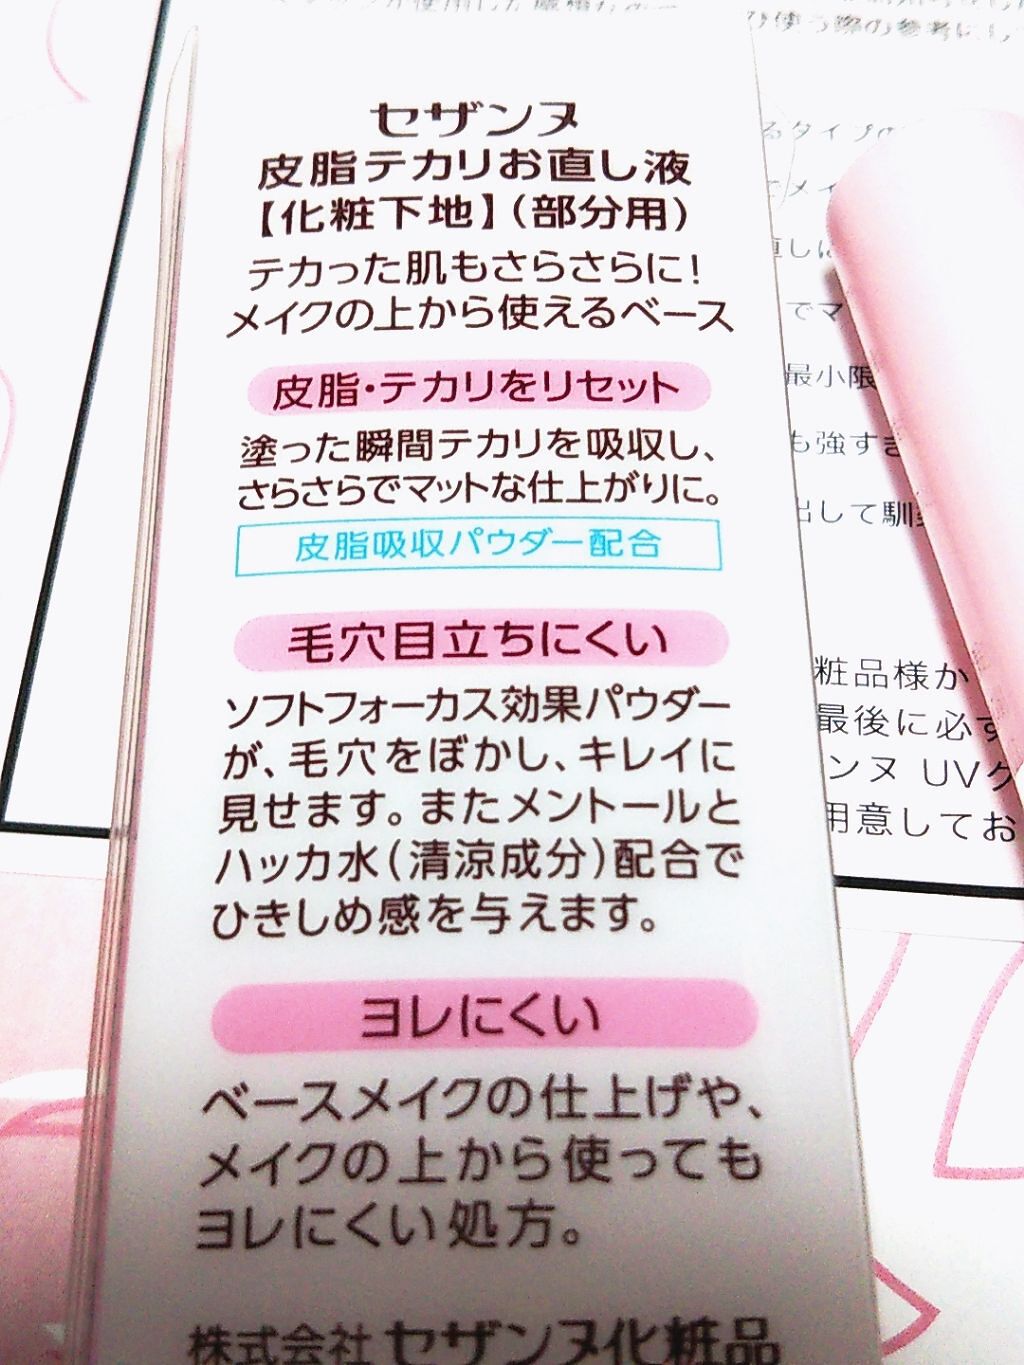 セザンヌ
皮脂テカリお直し液
【化粧下地】(部分用)
テカった肌もさらさらに!
メイクの上から使えるベース
皮脂・テカリをリセット
塗った瞬間テカリを吸収し、
さらさらでマットな仕上がりに。
皮脂吸収パウダー配合
毛穴目立ちにくい
ソフトフォーカス効果パウダー
が、毛穴をぼかし、キレイに
見せます。またメントールと
ハッカ水(清涼成分)配合で
ひきしめ感を与えます。
ヨレにくい
ベースメイクの仕上げや、
メイクの上から使っても
ヨレにくい処方。
株式会社 セザンヌ化粧品
使う際の参考にし
るタイプの
でメイ
でマ
最小限
も強すぎ
出して馴
粧品様か
最後に必ず
ンヌ UVク
用意してお